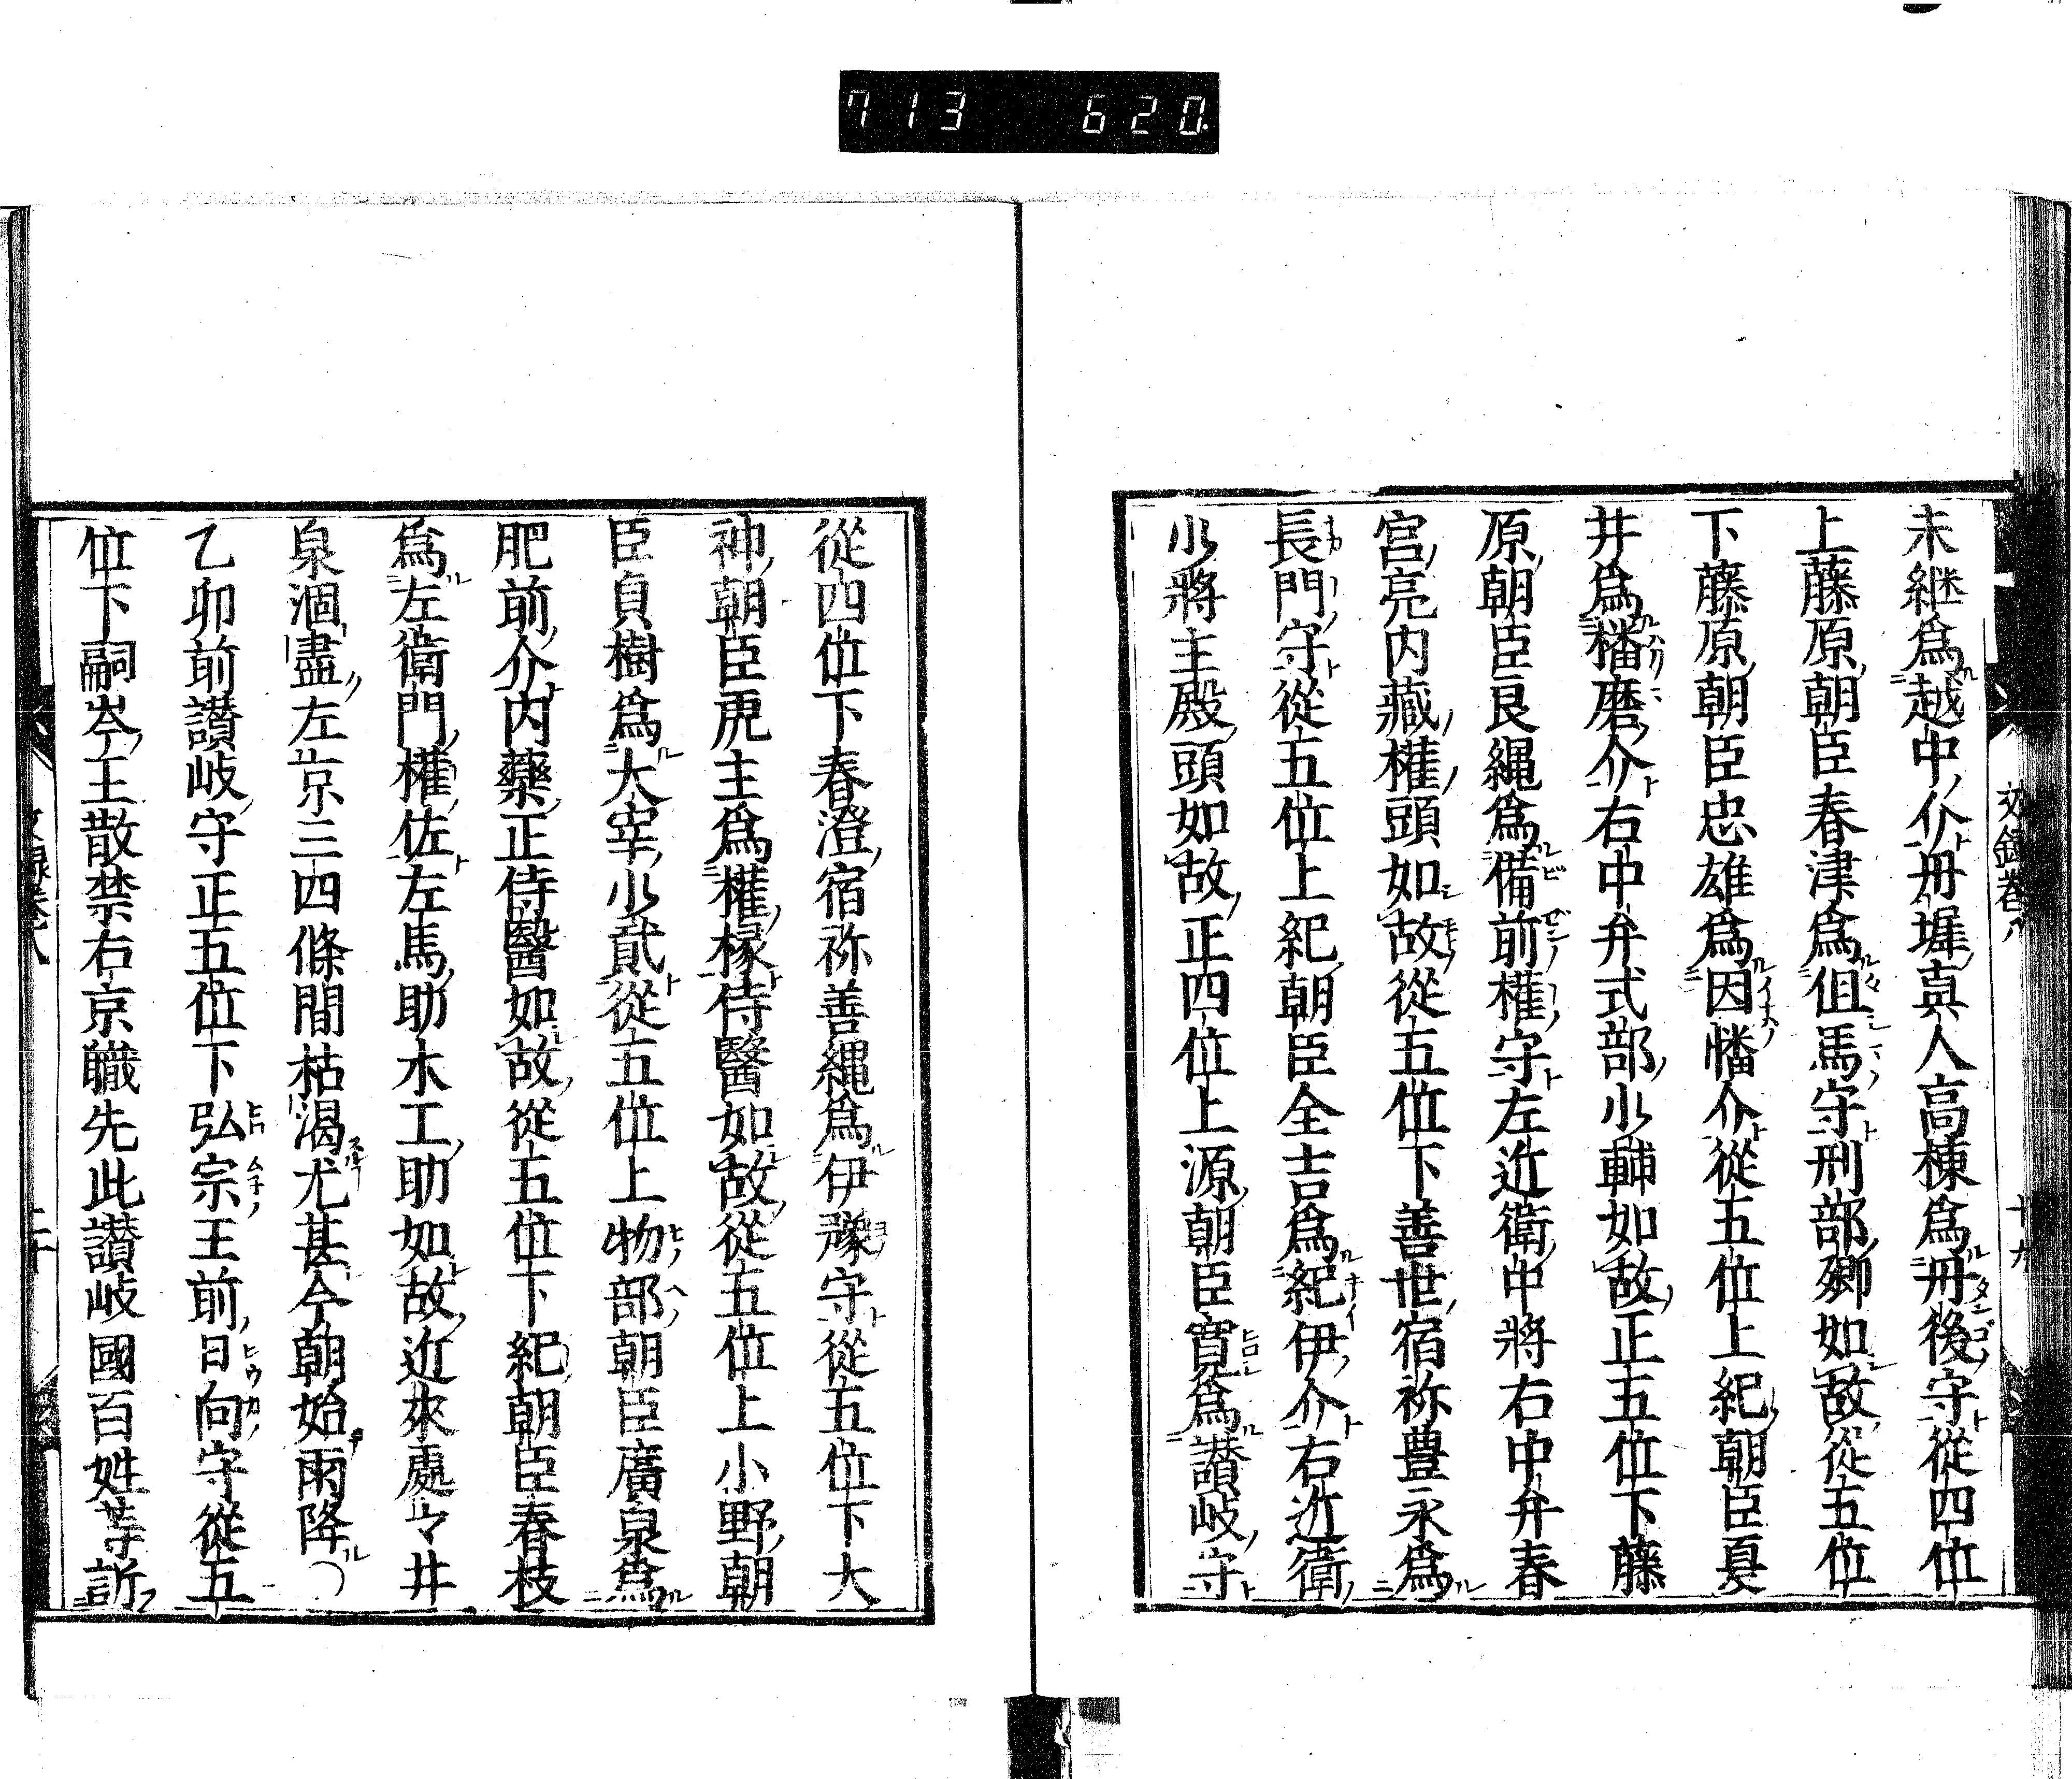 713 620
未継爲越中介丹墀真人高棟爲丹後守從四位
上藤原朝臣春津爲但馬守刑部卿如故從五位
下藤原朝臣忠雄爲因幡介從五位上紀朝臣夏
井爲播磨介右中弁式部少輔如故正五位下藤
原朝臣良縄爲備前權守左近衛中將右中弁春
宮亮内藏權頭如故從五位下善世宿祢豊永爲
長門守從五位上紀朝臣全吉爲紀伊介右近衛
少將主殿頭如故正四位上源朝臣寛爲讃岐守
文録卷八
十九
從四位下春澄宿祢善縄爲伊豫守從五位下大
神朝臣虎主爲權掾侍醫如故從五位上小野朝
臣貞樹爲大宰少貳從五位上物部朝臣廣泉爲
肥前介内藥正侍醫如故從五位下紀朝臣春枝
爲左衛門權佐左馬助木工助如故近來處々井
泉涸盡左京三四條間枯渇尤甚今朝始雨降〇
乙卯前讃岐守正五位下弘宗王前日向守從五
位下嗣岑王散禁右京職先此讃岐國百姓等訴